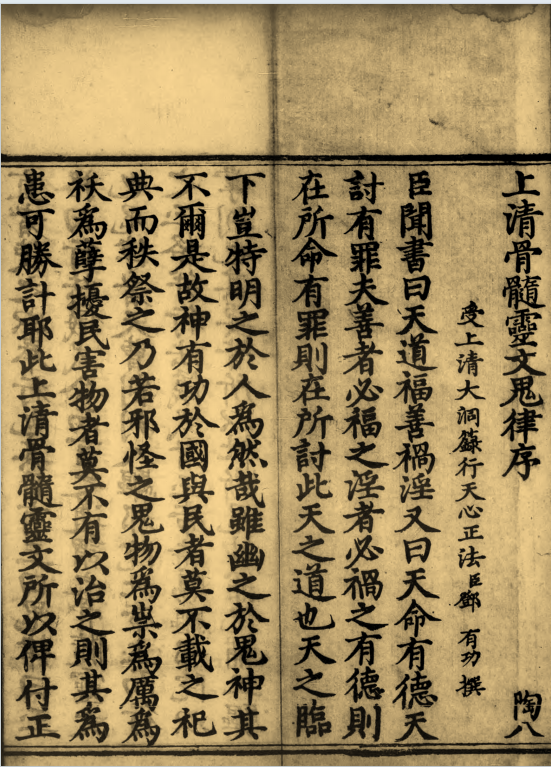 上清骨髓靈文鬼律序 陶八
受上清大洞籙行天心正法臣鄧 有功 撰
臣聞書曰天道福善禍淫又曰天命有德天
討有罪夫善者必福之淫者必禍之有德則
在所命有罪則在所討此天之道也天之臨
下豈特明之於人爲然哉雖幽之於鬼神其
不爾是故神有功於國與民者莫不載之祀
典而秩祭之乃若邪怪之鬼物爲祟爲厲爲
袄爲孽擾民害物者莫不有以治之則其爲
患可勝計耶此上清骨髓靈文所以俾付正